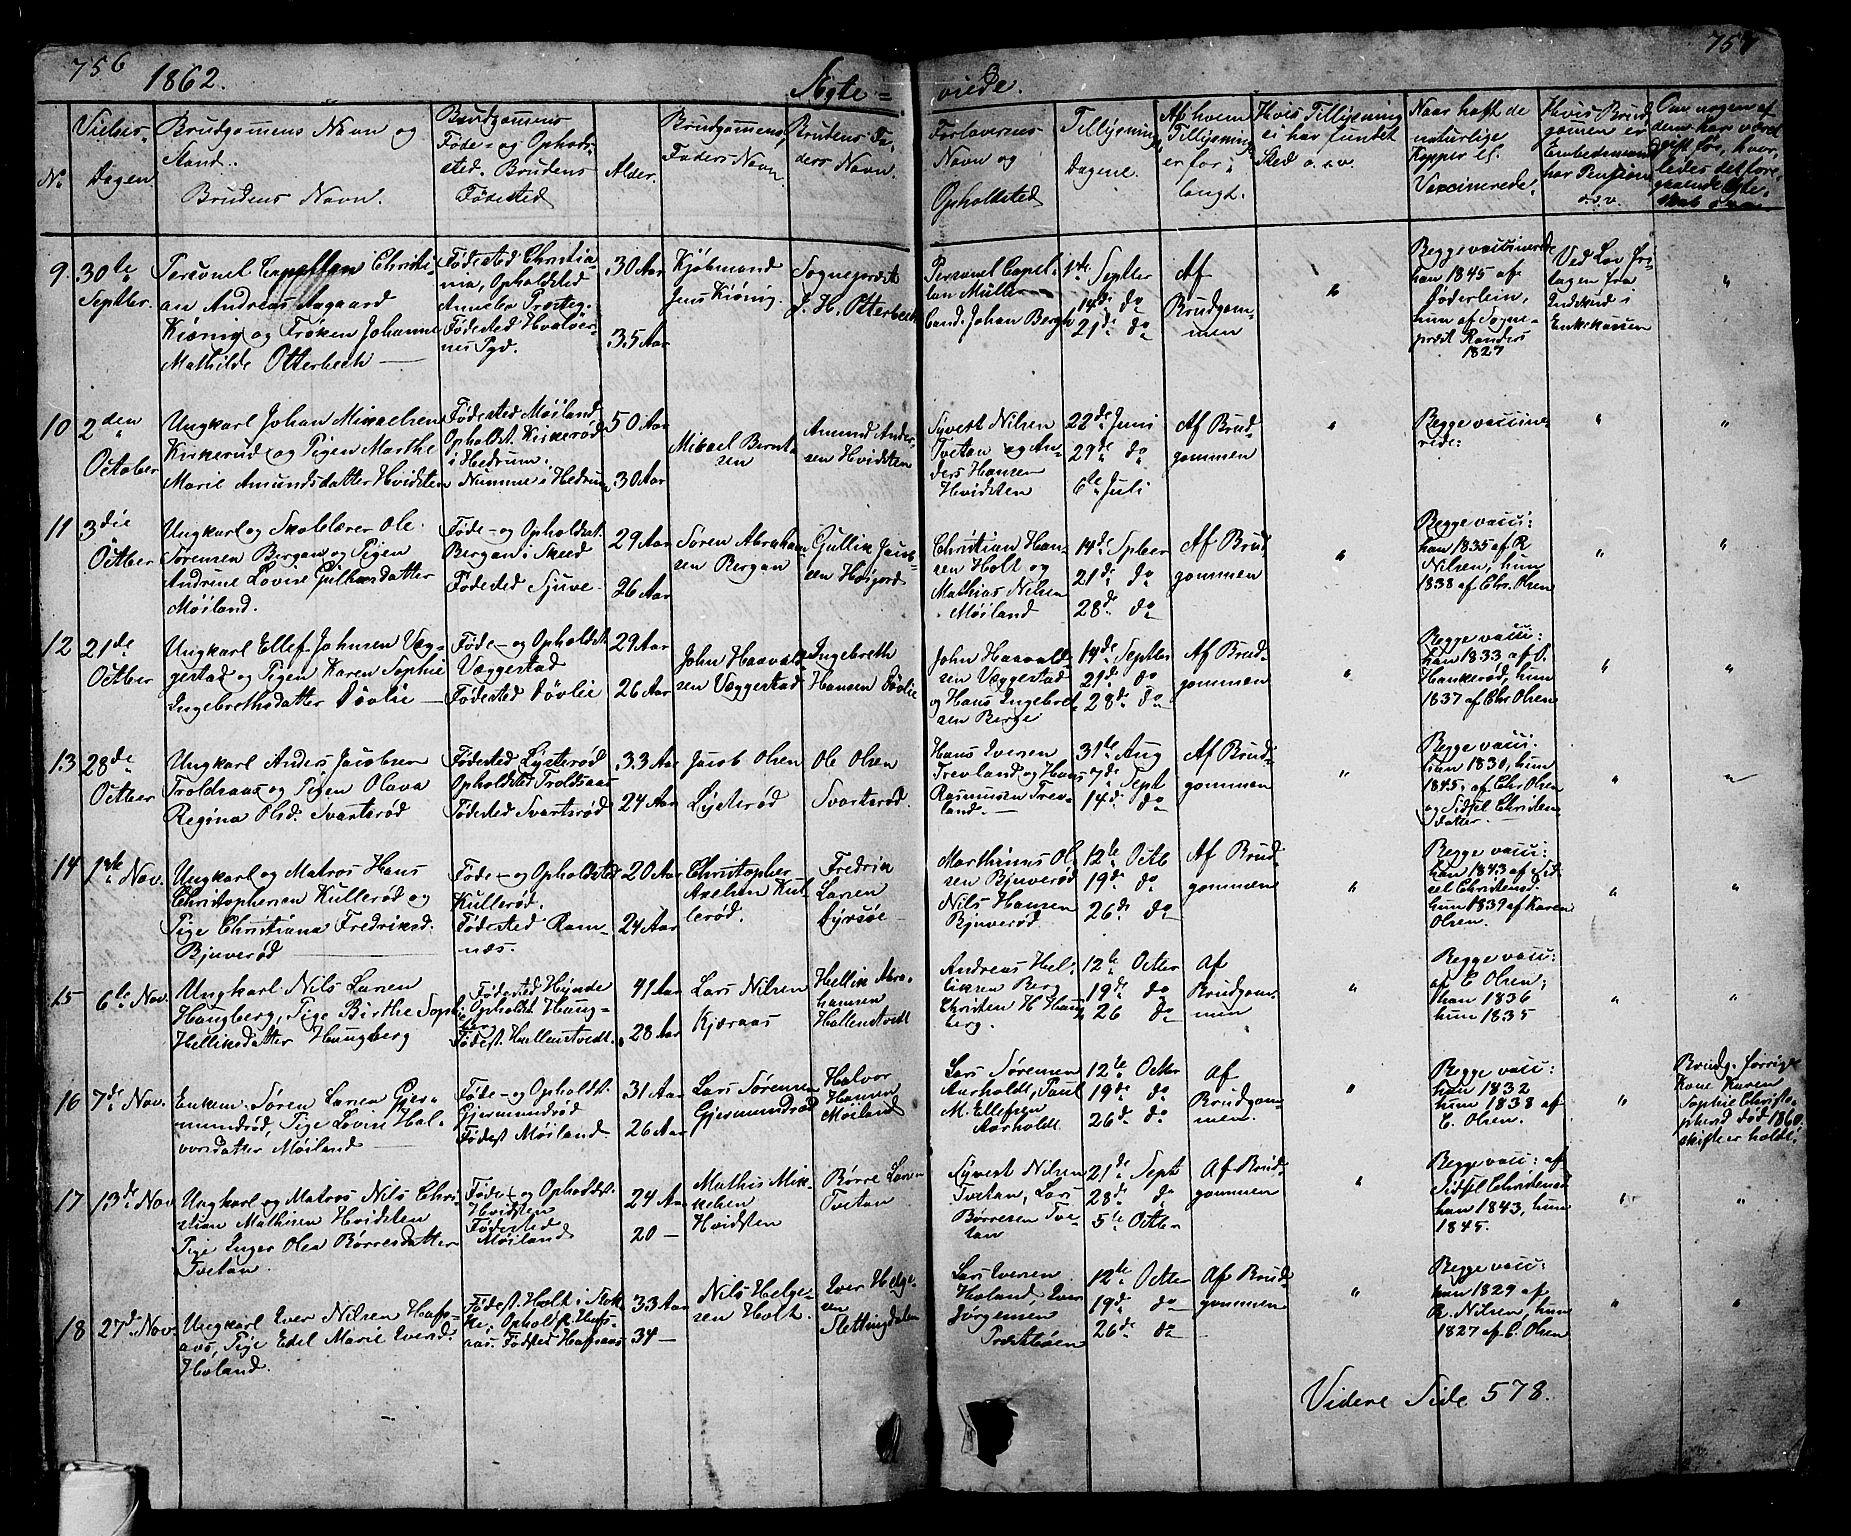 756
1862.
Ægte =
viede.
757
No.
Vielses-
Dagen
Brudgommens Navn og
Stand.
Brudens Navn.
Brudgommens
Føde- og Opholds-
sted. Brudens
Fødested
Alder.
Brudgommens
Faders Navn.
Brudens Fa-
ders Navn.
Forlovernes
Navn og
Opholdsted
Tillysnings
Dagene.
Af hvem
Tillysning
er for-
langt.
Hvis Tillysning
ei har fundet
Sted o.s.v.
Naar haft de
naturlige
Kopper el.
Vaccinerede.
Hvis Brud-
gommen er
Embedsmand
har Pension
o.s.v.
Om nogen af
dem har været
gift før, hvor-
ledes det fore-
gaaende Ægte-
skab
9.
30te
Septber.
Personel Capellan Christi-
an Andreas Aagaard
Kiønig og Frøken Johanne
Mathilde Otterbech
Fødested Christia-
nia, Opholdsted
Annebo Præsteg.
Fødested Hvaløer-
nes Pgd.
30 Aar
35 Aar
Kjøbmand
Jens Kiønig
Sognepræst
J. H. Otterbech
Personel Capel-
lan Müller
Cand. Johan Bergh
1ste Septber
14de do
21de do
Af
Brudgom-
men
"
Begge vaccinerede
han 1845 af
Søderlein,
hun af Sogne-
præst Randers
1827
Ved Lov fri-
tagen fra
Indskud i
Enkekassen
"
10
2den
October
Ungkarl Johan Mikkelsen
Kirkerud og Pigen Marthe
Marie Amundsdatter Hvidsten
Fødested Møiland
Opholdst. Kirkerød
i Hedrum.
Numme i Hedrum
50 Aar
30 Aar
Mikael Bernt-
sen
Amund Ander-
sen Hvidsten
Syvert Nilsen
Tvetan og An-
ders Hansen
Hvidsten
22de Juni
29de do
6te Juli
Af Brud-
gommen
"
Begge vaccine-
rede:
"
"
11
3die
Octber
Ungkarl og Skolelærer Ole
Sørensen Bergan og Pigen
Andrine Lovise Gulliksdatter
Møiland.
Føde- og Opholdsst.
Bergan i Skeed
Fødested Sjuve
29 Aar
26 Aar
Søren Abraham-
sen Bergan
Gullik Jacob-
sen Høigord
Christian Han-
sen Holt og
Mathias Nilsen
Møiland
14de Sptber
21de do
28de do
Af Brud
gommen
"
Begge vacci:
han 1835 af R
Nilsen, hun
1838 af Chr. Olsen
"
"
12
21de
Octber
Ungkarl Ellef Johnsen Væg-
gestad og Pigen Karen Sophie
Ingebrethsdatter Døvlie
Føde- og Opholdst.
Væggestad
Fødested Døvlie
29 Aar
26 Aar
John Haavald-
sen Væggestad
Ingebreth
Hansen Døvlie
John Haavald-
sen Væggestad
og Hans Ingebret-
sen Berge
14de Septber
21de do
28de do
Af Brud-
gommen
"
Begge vacci:
han 1833 af O.
Hankerød, hun
1837 af Chr Olsen
"
"
13
28de
Octber
Ungkarl Anders Jacobsen
Troldsaas og Pigen Olava
Regina Olsd. Svartsrød
Fødested Lysterød
Opholdsted Troldsaas
Fødested Svartsrød
33 Aar
24 Aar
Jacob Olsen
Lysterød
Ole Olsen
Svartsrød.
Hans Iversen
Trevland og Hans
Rasmusen Trev-
land.
31te Aug
7de Sept
14de do
Af Brud-
gommen
"
Begge vacci.
han 1830, hun
1845, af Chr Olsen
og Sidsel Christens
datter.
"
"
14
1ste Nov.
Ungkarl og Matros Hans
Christophersen Kullerød og
Pige Christiana Fredriksd.
Bjuverød
Føde- og Opholdsted
Kullerød.
Fødested Ram-
næs.
20 Aar
24 Aar
Christopher
Axelsen Kul-
lerød.
Fredrik
Larsen
Fyrsøe
Marthinus Ol-
sen Bjuverød
Nils Hansen
Bjuverød
12te Octb
19de do
26de do
Af Brud-
gommen
"
Begge vacci:
han 1843 af Sid-
sel Christensd.
hun 1839 af Karen
Olsen.
"
"
15
6te Nov.
Ungkarl Nils Larsen
Haugberg, Pige Birthe Sophie
Helliksdatter Haugberg
Fødested Hynde
Opholdst Haug-
berg
Fødest. Hallenstvedt.
41 Aar
28 Aar
Lars Nilsen
Kjæraas
Hellik Abra-
hamsen
Hallenstvedt
Andreas Hel-
liksen Berg
Christen H Haug-
berg.
12te Octer
19de do
26 do
Af
Brudgom-
men
"
Begge vacci:
af C Olsen;
han 1836
hun 1835
"
"
16
7de Nov.
Enkem. Søren Larsen Gjer-
mundrød, Pige Lovise Hal-
vorsdatter Møiland
Føde- og Opholdst.
Gjermundrød
Fødest Møiland.
31 Aar
26 Aar
Lars Sørensen
Gjermundrød
Halvor
Hansen
Møiland
Lars Sørensen
Aarholdt, Paul
M. Ellefsen
Aarholdt.
12te Octer
19de do
26de do
Af
Brudgom-
men.
"
Begge vacci:
han 1832
hun 1838 af
C. Olsen.
"
Brudg. forrige
Kone Karen
Sophie Christo-
phersd død 1860.
skifte er holdt.
17
13de Nov
Ungkarl og Matros Nils Chri-
stian Mathisen Hvidsten
Pige Inger Olea Børresdatter
Tvetan.
Føde- og Opholdst.
Hvidsten
Fødested
Møiland
24 Aar
20 —
Mathis Mik-
kelsen
Hvidsten
Børre Larsen
Tvetan
Syvert Nilsen
Tvetan, Lars
Børresen Tve-
tan
21de Sept
28de do
5te Octber
Af Brud-
gommen
"
Begge vacci: af
Sidsel Christensd
han 1843, hun
1845.
"
"
18
27de Nov.
Ungkarl Iver Nilsen Hafs-
aas, Pige Edel Marie Iversd:
Holand.
Fødest. Holt i Stok-
ke, Opholdst Hafs-
aas. Fødsted Hafsaas
33 Aar
34 —
Nils Helge-
sen Holt.
Iver Helge-
sen
Slettingdalen
Lars Iversen
Holand, Iver
Jørgensen
Præstbøen
12te Octer
19de do
26de do
Af Brud-
gommen
"
Begge vacci:
han 1829 af
R. Nilsen, hun
1827 af C. Olsen
"
"
Videre Side 578.